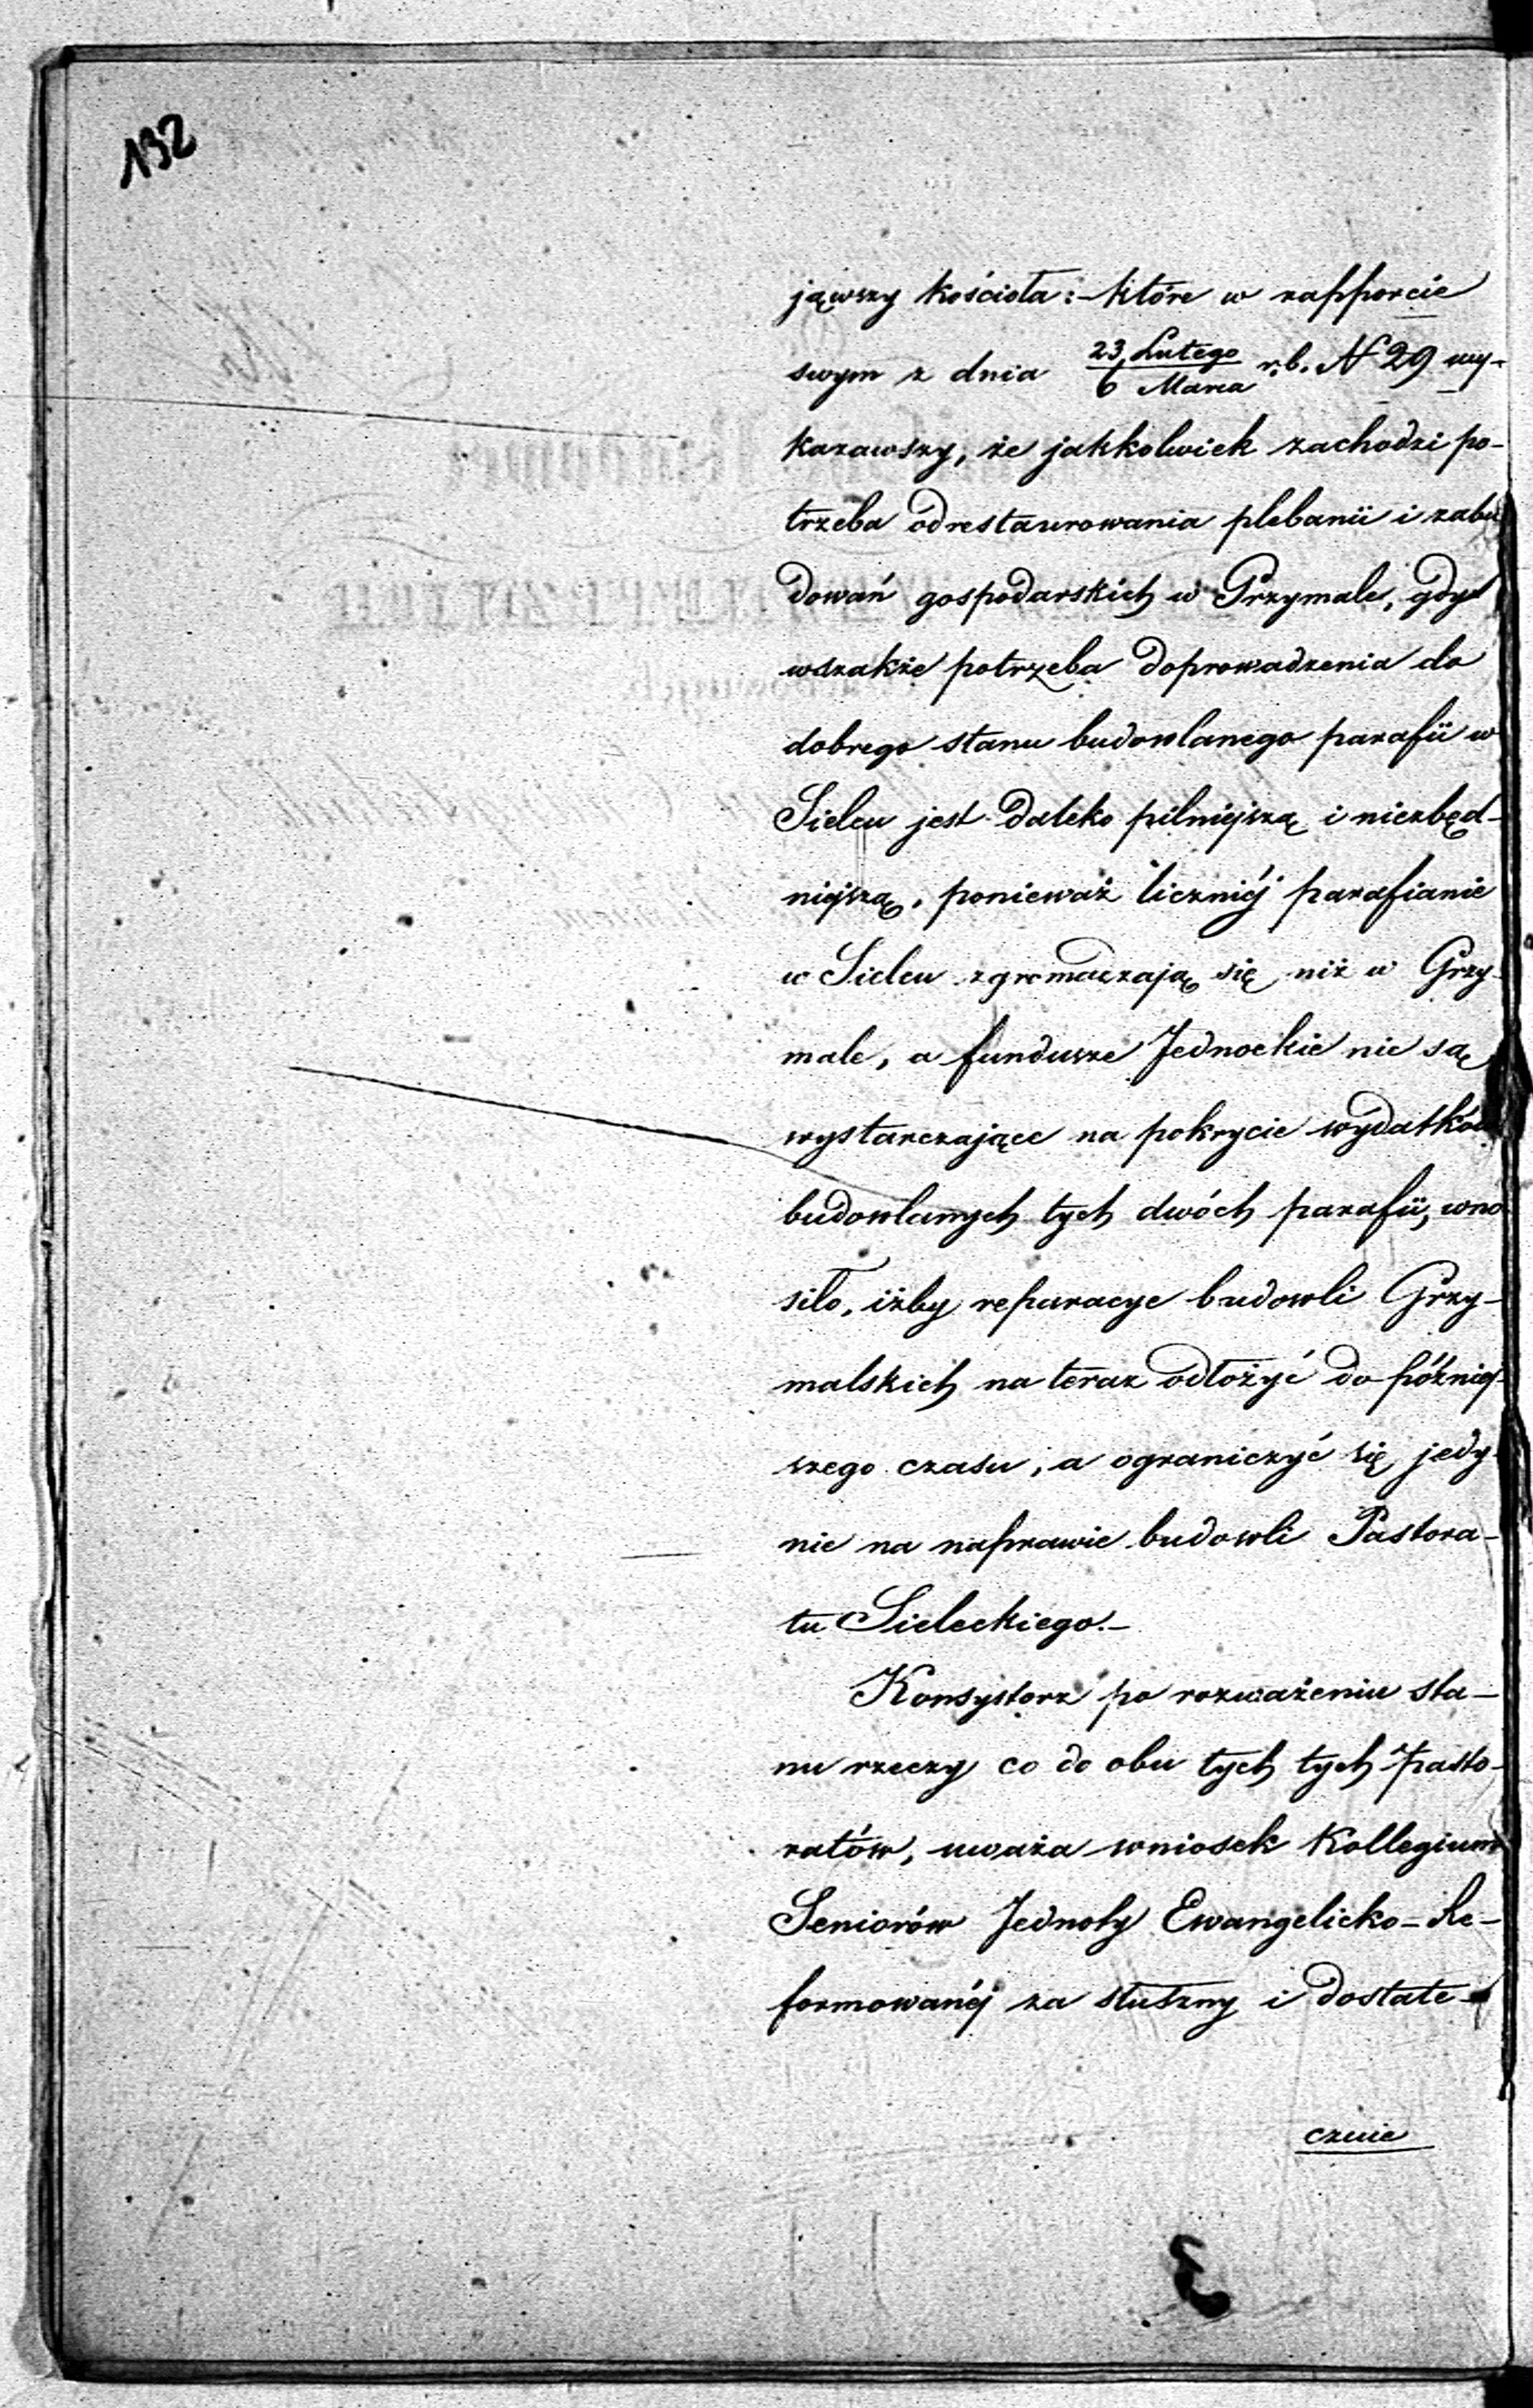 132
jąwszy kościoła:- które w rapporcie
swym z dnia 23 Lutego / 6 Marca r.b. N 29 wy-
kazawszy, że jakkolwiek zachodzi po-
trzeba odrestaurowania plebanii i zabu
dowań gospodarskich w Grzymale, gdy
wszakże potrzeba doprowadzenia do
dobrego stanu budowlanego parafii w
Sielcu jest daleko pilniejszą i niezbęd-
niejszą, ponieważ liczniéj parafianie
w Sielcu zgromadzają się niż w Grzy-
male, a fundusze Jednockie nie są
wystarczające na pokrycie wydatków
budowlanych tych dwóch parafii, wno
siło, iżby reparacye budowli Grzy-
malskich na teraz odłożyć do późniéj-
szego czasu, a ograniczyć się jedy-
nie na naprawie budowli Pastora-
tu Sieleckiego.-
Konsystorz po rozważeniu sta-
nu rzeczy co do obu tych tych Pasto-
ratów, uważa wniosek Kollegium
Seniorów Jednoty Ewangelicko-Re-
formowanéj za słuszny i dostate-
cznie